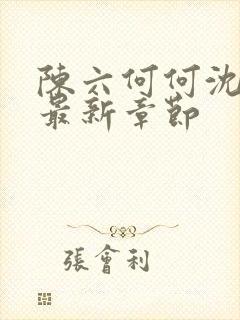 陳六何何沈
最新章節
張會利